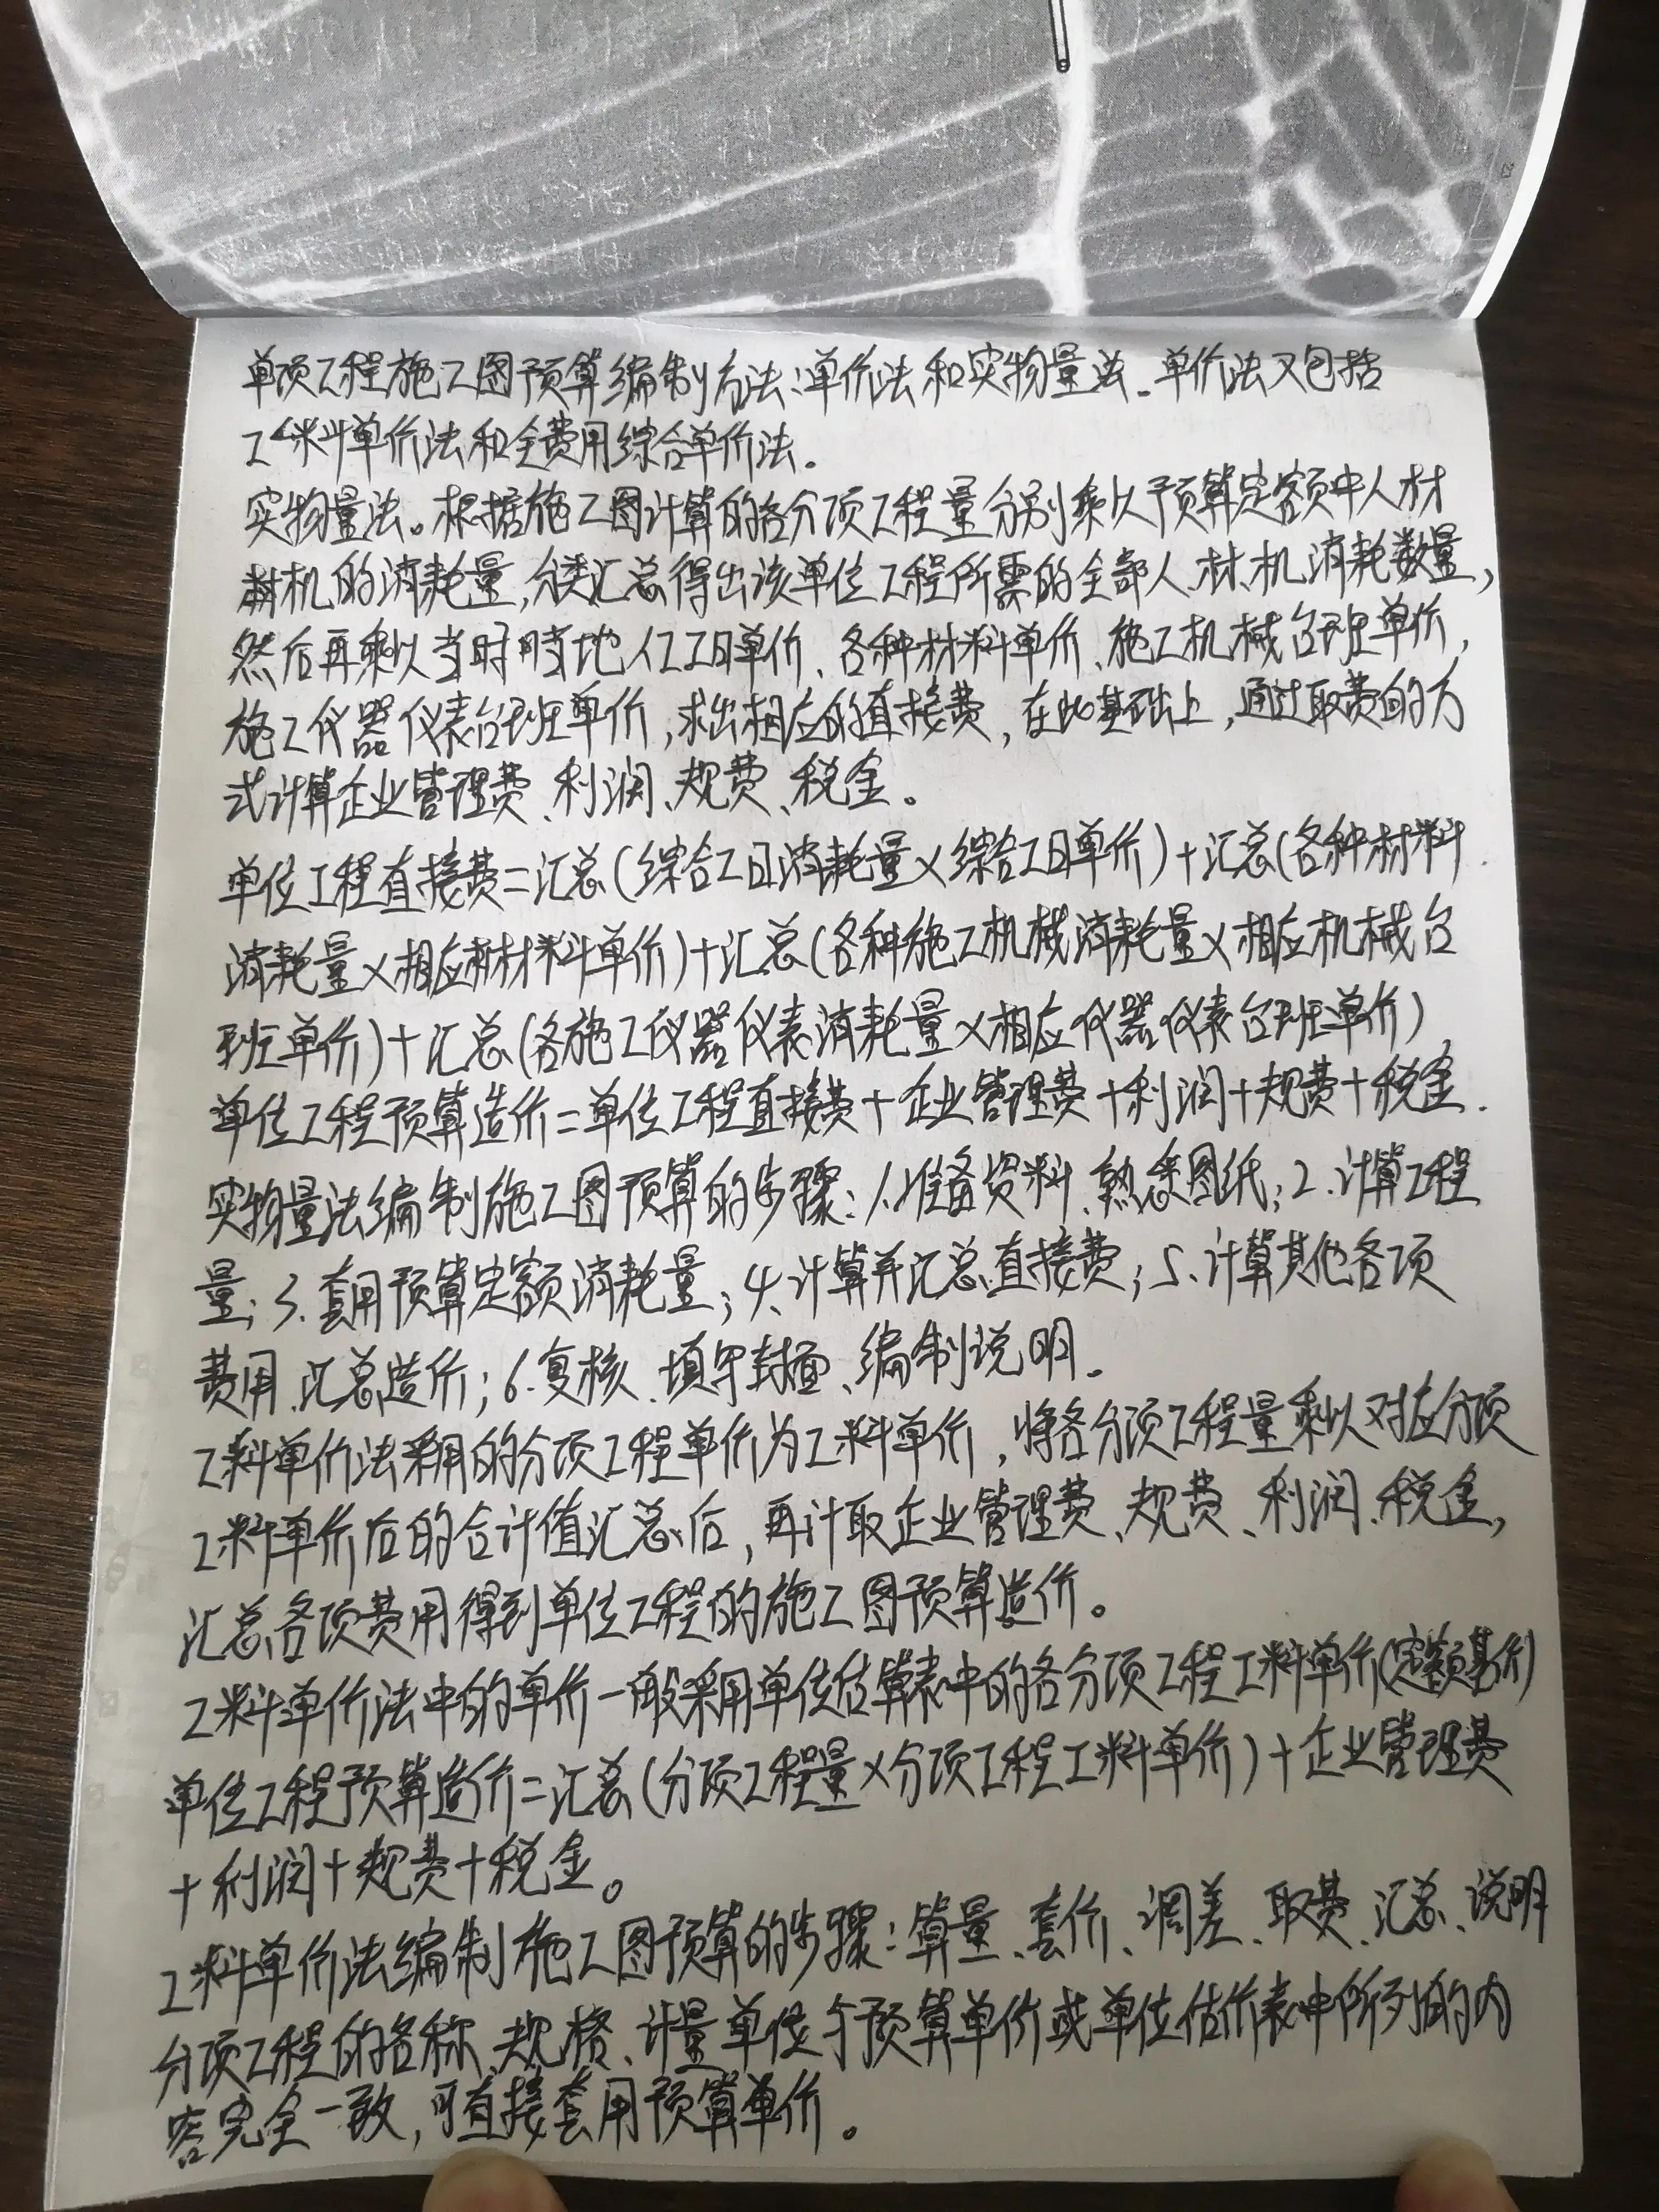 单项工程施工图预算编制方法:单价法和实物量法.单价法又包括
工料单价法和全费用综合单价法.
实物量法。根据施工图计算的各分项工程量分别乘以预算定额中人材
材机的消耗量,分类汇总得出该单位工程所需的全部人、材、机消耗数量,
然后再乘以当时当地人工工日单价、各种材料单价、施工机械台班单价,
施工仪器仪表台班单价,求出相应的直接费,在此基础上,通过取费的方
式计算企业管理费、利润、规费、税金。
单位工程直接费=汇总(综合工日消耗量×综合工日单价)+汇总(各种材料
消耗量×相应材料单价)+汇总(各种施工机械消耗量×相应机械台
班单价)+汇总(各施工仪器仪表消耗量×相应仪器仪表台班单价)
单位工程预算造价=单位工程直接费+企业管理费+利润+规费+税金.
实物量法编制施工图预算的步骤:1.准备资料、熟悉图纸;2.计算工程
量;3.套用预算定额消耗量;4、计算并汇总直接费;5、计算其他各项
费用、汇总造价;6.复核、填写封面、编制说明.
工料单价法采用的分项工程单价为工料单价,将各分项工程量乘以对应分项
工料单价后的合计值汇总后,再计取企业管理费、规费、利润、税金,
汇总各项费用得到单位工程的施工图预算造价。
工料单价法中的单价一般采用单位估算表中的各分项工程工料单价(定额基价)
单位工程预算造价=汇总(分项工程量×分项工程工料单价)+企业管理费
+利润+规费+税金。
工料单价法编制施工图预算的步骤:算量、套价、调差、取费、汇总、说明
分项工程的名称、规格、计量单位与预算单价或单位估价表中所列的内
容完全一致,可直接套用预算单价。